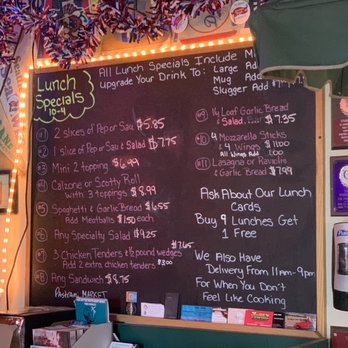 Lunch
Specials
10-4
All Lunch Specials Include M
Upgrade Your Drink To: Large Add
Mug Add
Slugger Add $7.
#1 2 slices of Pep or Sau $5.85
#2 1 slice of Pep or Sau & Salad $7.75
#3 Mini 2 topping $6.99
#4 Calzone or Scotty Roll
with 3 toppings $8.99
#5 Spaghetti & Garlic Bread $6.55
Add Meatballs $1.50 each
#6 Any Specialty Salad $9.25
#7 3 Chicken Tenders & 1/2 pound wedges $7.65
Add 2 extra chicken tenders $3.00
#8 Any Sandwich $8.75
#9 1/4 Loaf Garlic Bread
& Salad $7.35
#10 4 Mozzarella Sticks
& 4 Wings $11.00
All Wings Add 1.00
#11 Lasagna or Raviolis
& Garlic Bread $7.99
Ask About Our Lunch
Cards
Buy 9 Lunches Get
1 Free
We Also Have
Delivery From 11am-9pm
For When You Don't
Feel Like Cooking